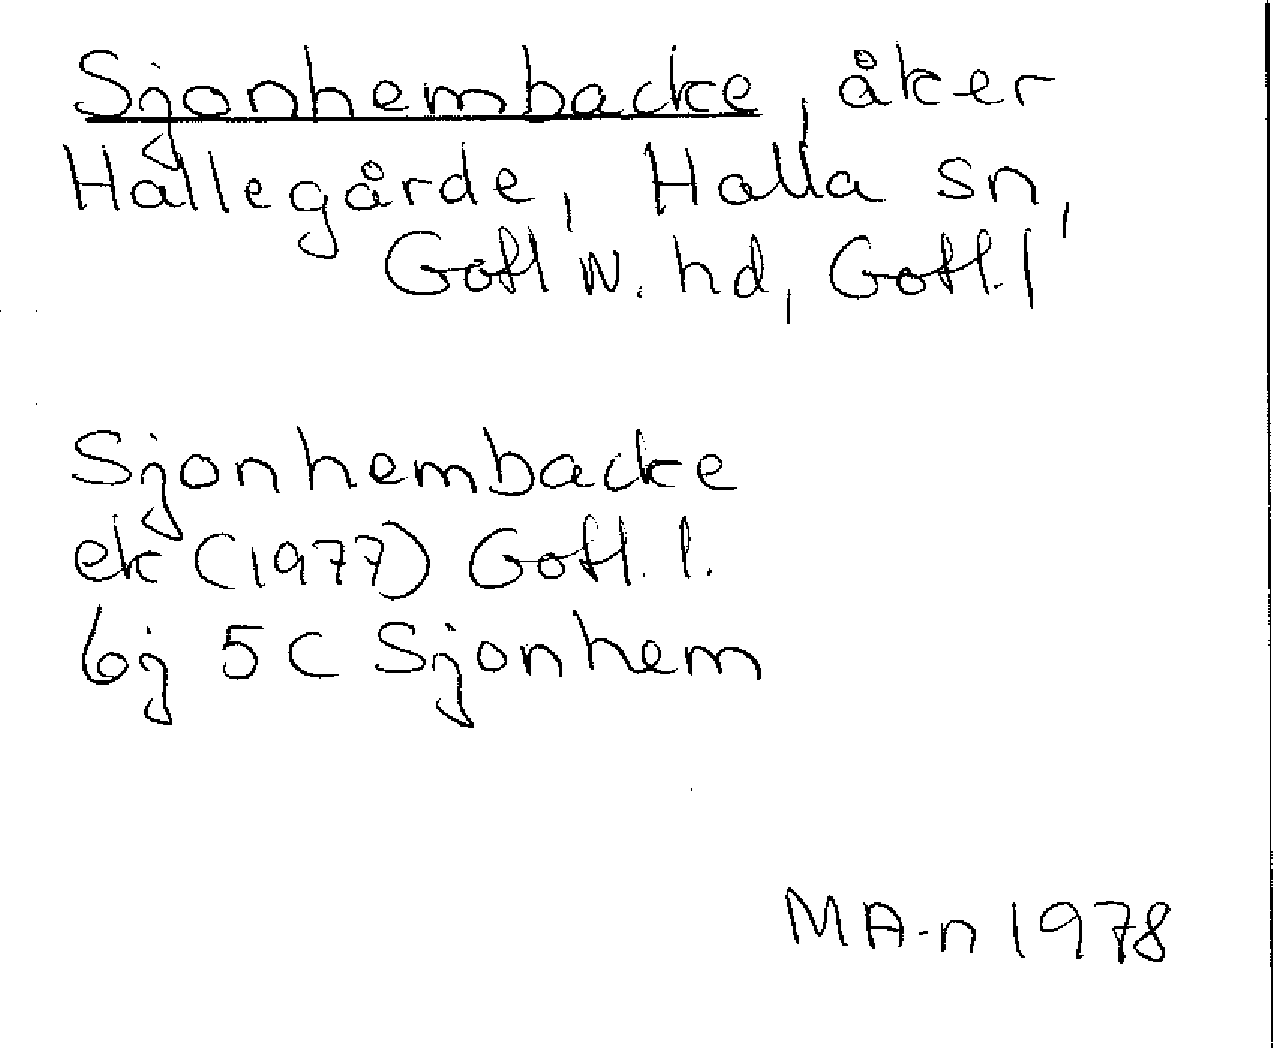 Sjonhembacke, åker
Hållegårde, Halla sn,
Gotl N. hd, Gotl. l
Sjonhembacke
ek (1977) Gotl. l.
6j 5C Sjonhem
MA-n 1978